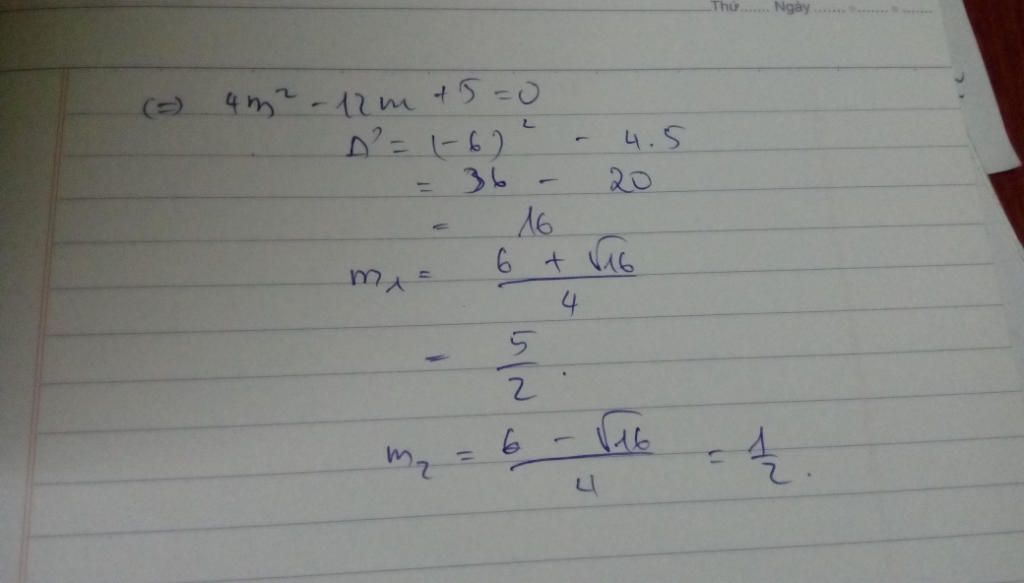 Thứ...... Ngày.......-.......-.......
(=) 4m² - 12m + 5 = 0
Δ' = (-6)² - 4.5
= 36 - 20
= 16
m₁ = (6 + √16)/4
= 5/2.
m₂ = (6 - √16)/4 = 1/2.